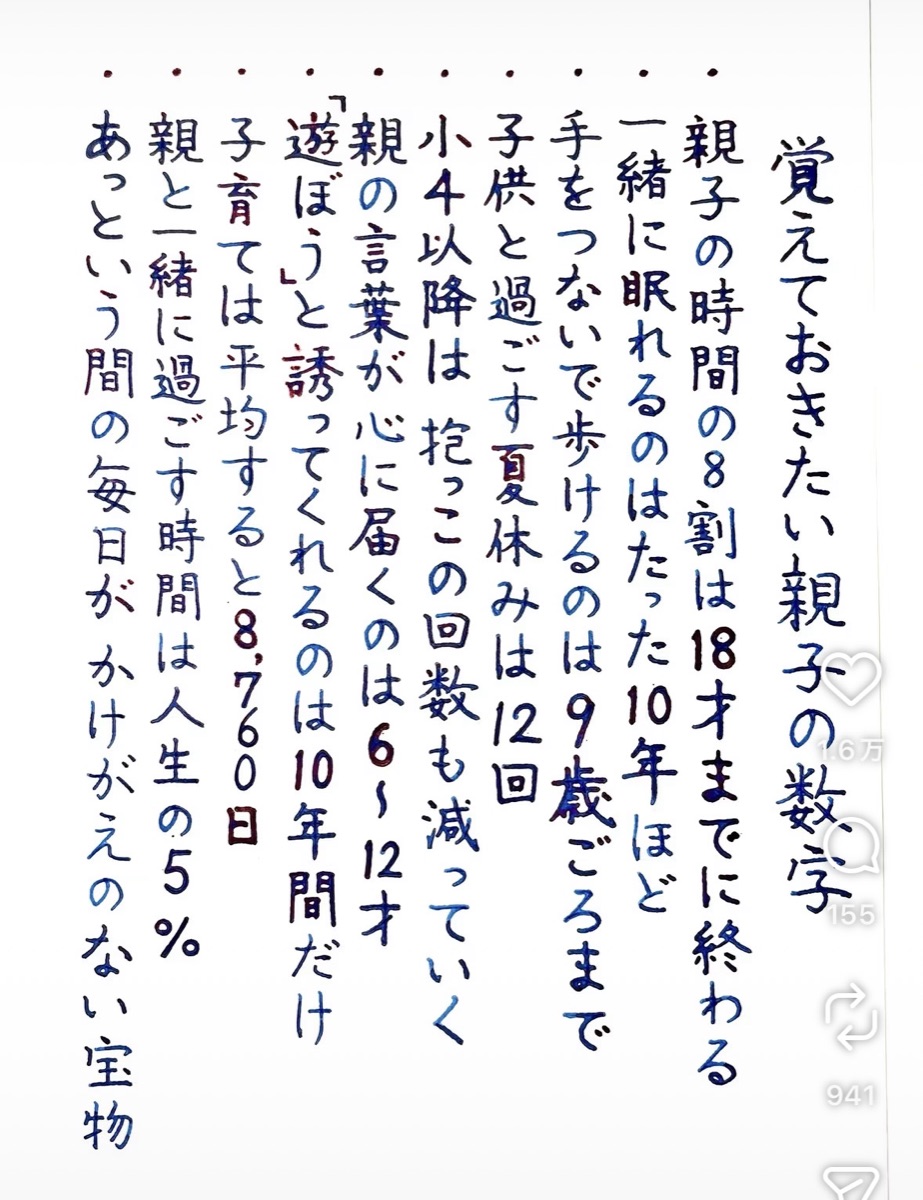 覚えておきたい親子の数字
・親子の時間の8割は18才までに終わる
・一緒に眠れるのはたった10年ほど
・手をつないで歩けるのは9歳ごろまで
・子供と過ごす夏休みは12回
・小4以降は 抱っこの回数も減っていく
・親の言葉が心に届くのは6~12才
・「遊ぼう」と誘ってくれるのは10年間だけ
・子育ては平均すると8,760日
・親と一緒に過ごす時間は人生の5%
・あっという間の毎日が かけがえのない宝物
1.6万
155
941